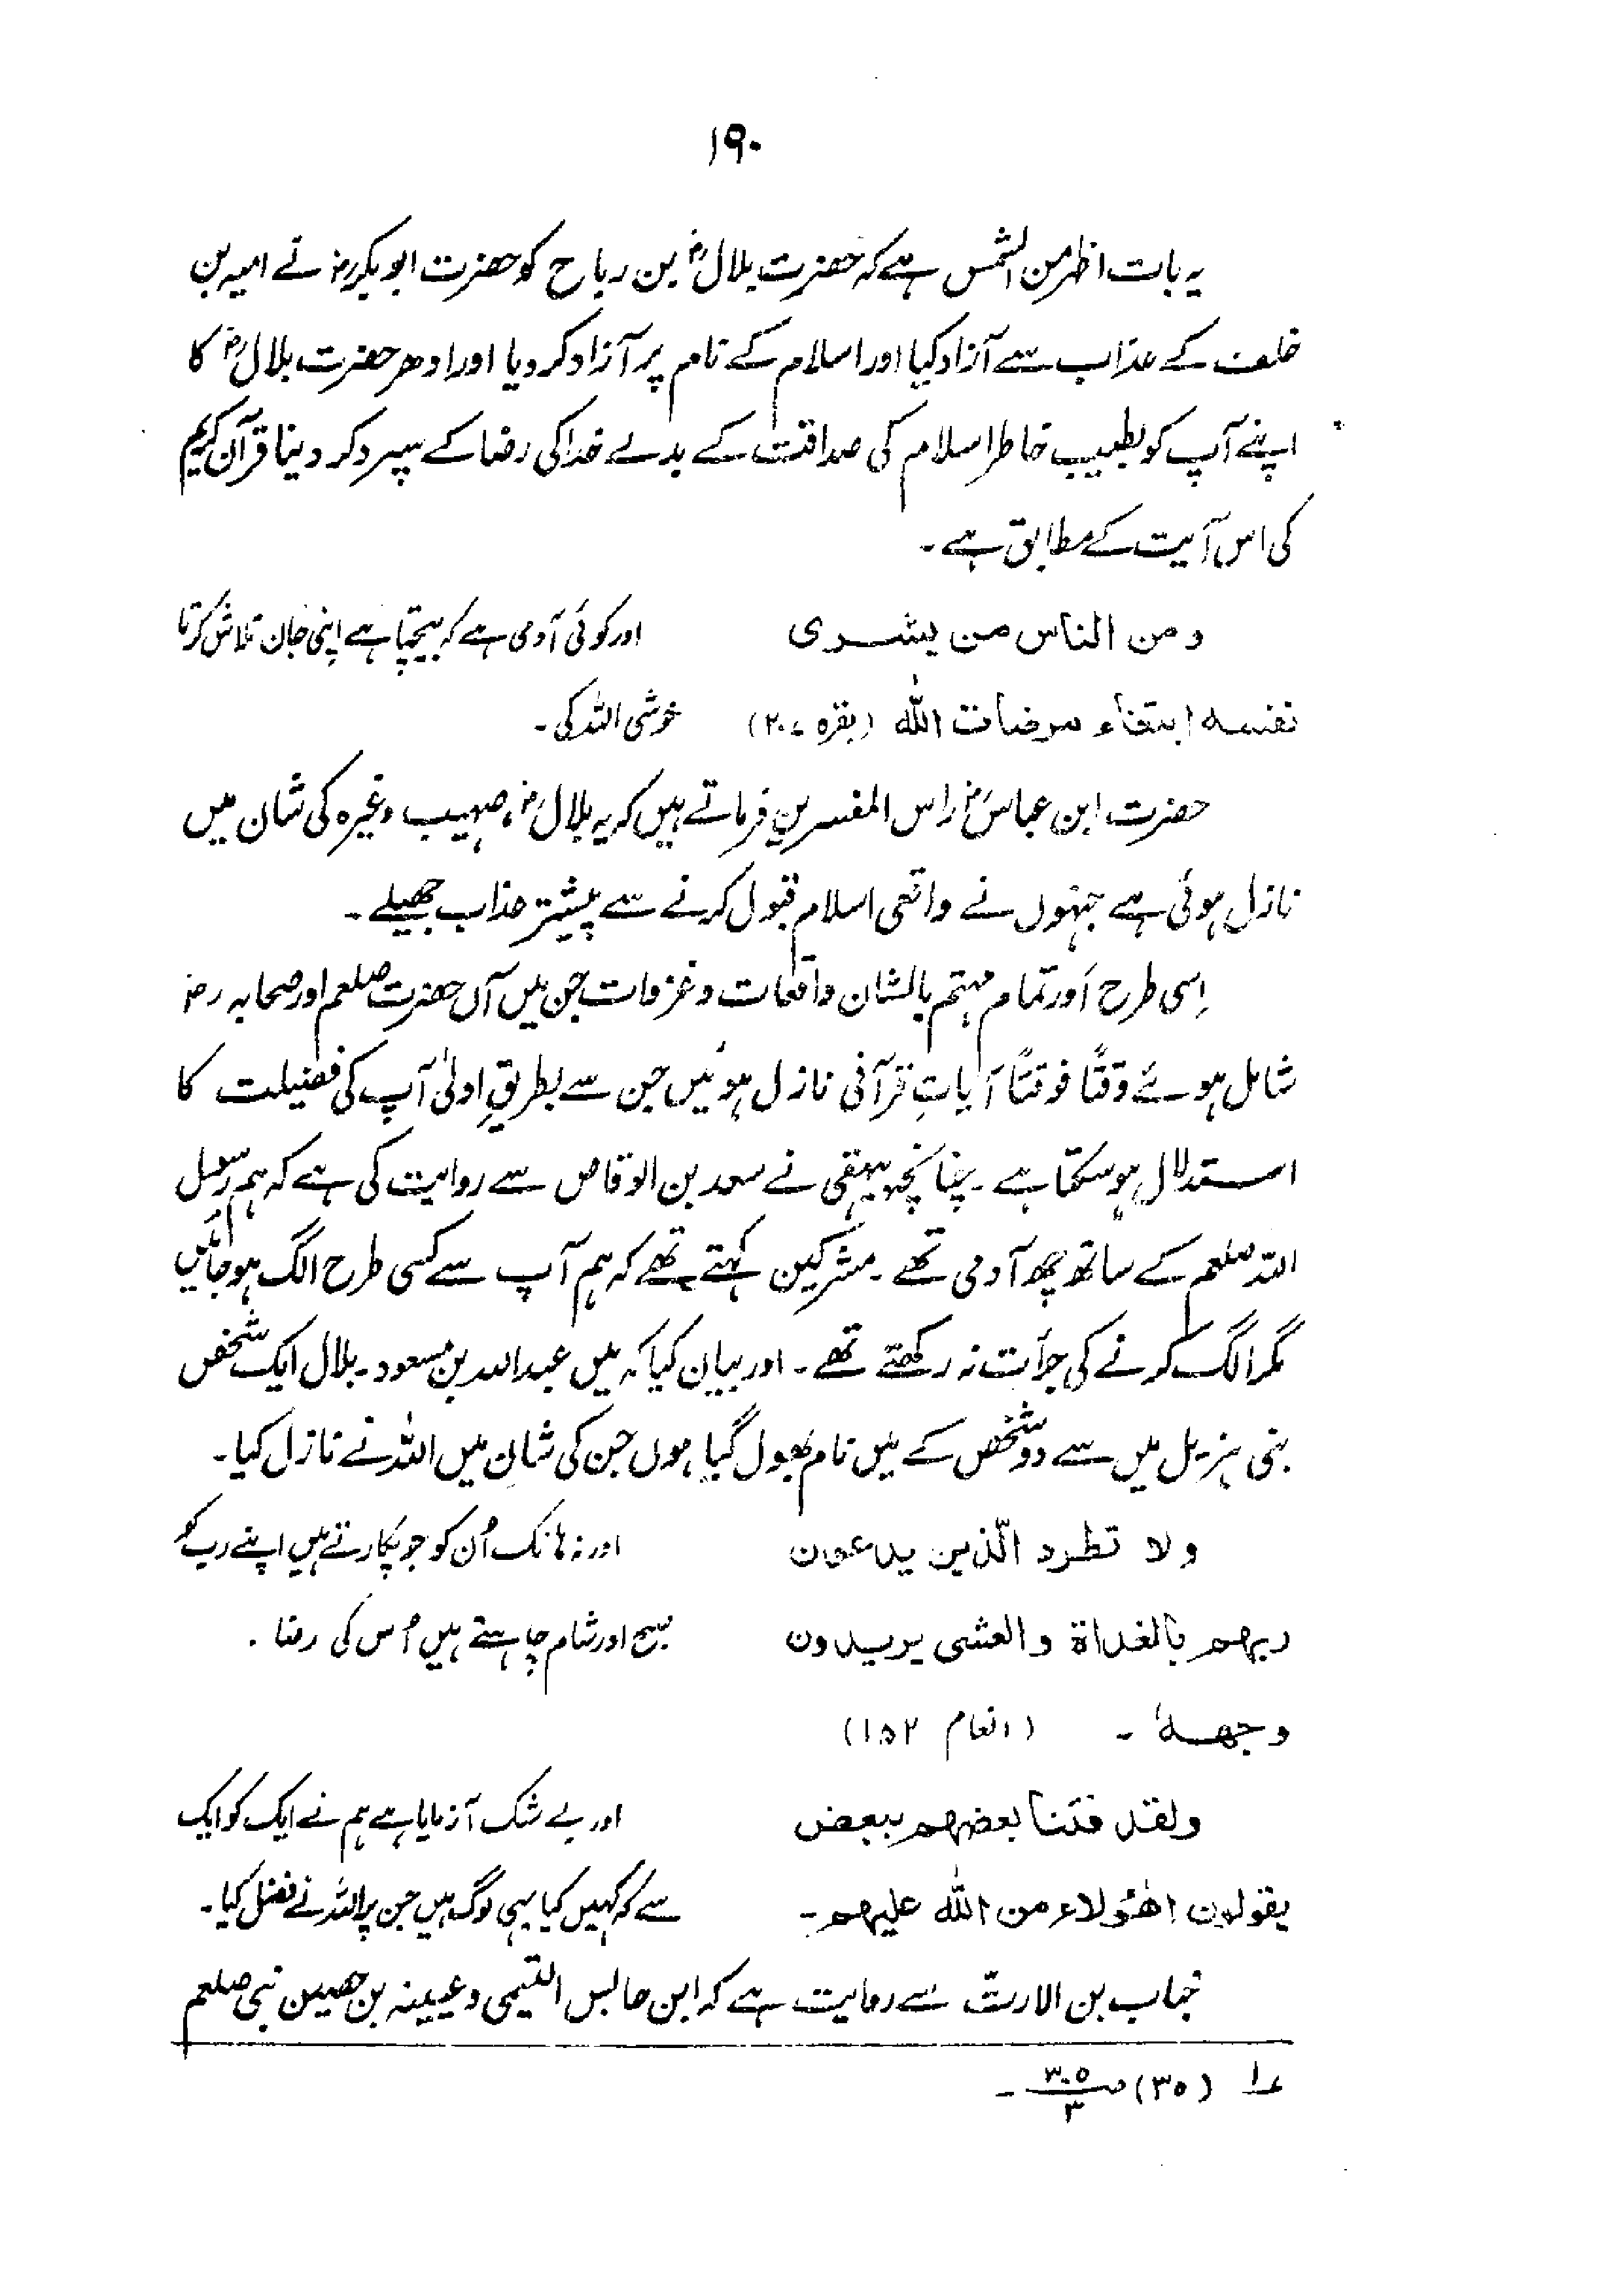 ۱۹۰
یہ بات اظہر من الشمس ہے کہ حضرت بلالؓ بن رباح کو حضرت ابوبکرؓ نے امیہ بن
خلف کے عذاب سے آزاد کیا اور اسلام کے نام پر آزاد کر دیا اور ادھر حضرت بلالؓ کا
اپنے آپ کو بطیب خاطر اسلام کی صداقت کے بدلے خدا کی رضا کے سپرد کر دینا قرآن کریم
کی اس آیت کے مطابق ہے۔
ومن الناس من یشری اور کوئی آدمی ہے کہ بیچتا ہے اپنی جان تلاش کرتا
نفسہ ابتغاء مرضات اللہ (بقرہ ۲۰۷) خوشی اللہ کی۔
حضرت ابن عباسؓ راس المفسرین فرماتے ہیں کہ یہ بلالؓ، صہیب وغیرہ کی شان میں
نازل ہوئی ہے جنہوں نے واقعی اسلام قبول کرنے سے پیشتر عذاب جھیلے۔
اِسی طرح اَور تمام مہتم بالشان واقعات و غزوات جن میں آں حضرت صلعم اور صحابہ رضؓ
شامل ہوئے وقتاً فوقتاً آیاتِ قرآنی نازل ہوئیں جن سے بطریقِ اولیٰ آپ کی فضیلت کا
استدلال ہو سکتا ہے۔ چنانچہ بیہقی نے سعد بن الوقاص سے روایت کی ہے کہ ہم رسول
اللہ صلعم کے ساتھ چھ آدمی تھے۔ مشرکین کہتے تھے کہ ہم آپ سے کسی طرح الگ ہو جائیں
مگر الگ کرنے کی جرأت نہ رکھتے تھے۔ اور بیان کیا کہ میں عبداللہ بن مسعود۔ بلال ایک شخص
بنی ہزیل میں سے دو شخص کے میں نام بھول گیا ہوں جن کی شان میں اللہ نے نازل کیا۔
ولا تطرد الّذین یدعون اور نہ ہانک اُن کو جو پکارتے ہیں اپنے رب کو
ربھم بالغداۃ والعشی یریدون صبح اور شام چاہتے ہیں اُس کی رضا۔
وجھہٗ۔ (انعام ۱۵۲)
ولقد فتنا بعضھم ببعض اور بے شک آزمایا ہے ہم نے ایک کو ایک
یقولون اھٰؤلاء من اللہ علیھم۔ سے کہ کہیں کیا یہی لوگ ہیں جن پر اللہ نے فضل کیا۔
خباب بن الارتّ سے روایت ہے کہ ابن حابس التیمی و عیینہ بن حصین نبی صلعم
؏۱ (۳۵) صـ ۳۰۵/۳ ـ